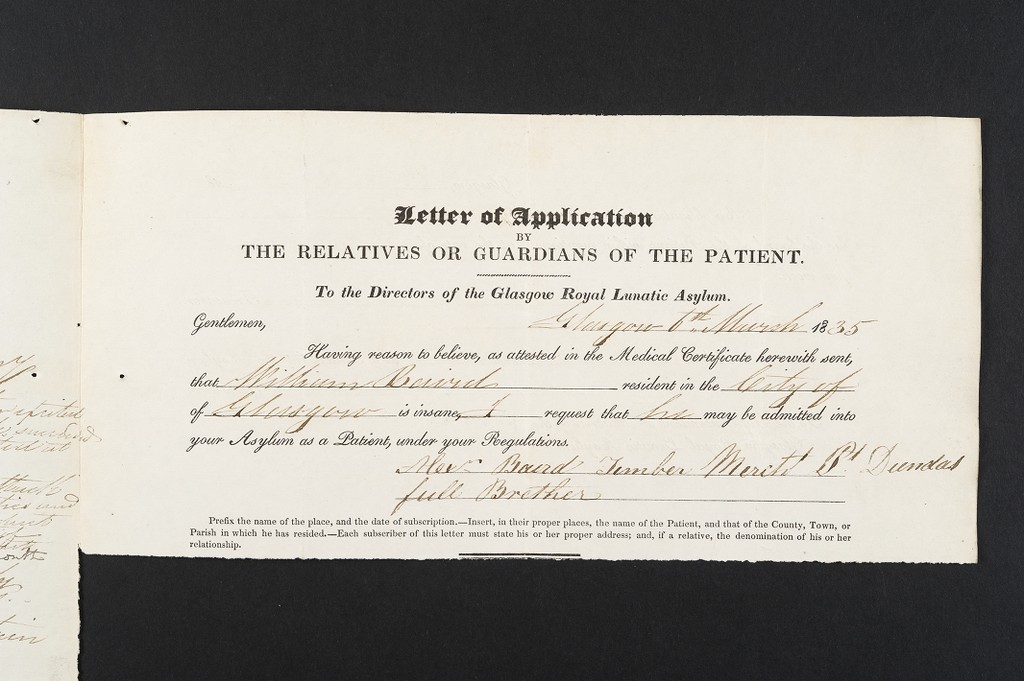 Letter of Application
BY
THE RELATIVES OR GUARDIANS OF THE PATIENT.
To the Directors of the Glasgow Royal Lunatic Asylum.
Gentlemen, Glasgow 6th March 1835
Having reason to believe, as attested in the Medical Certificate herewith sent,
that William Baird resident in the City of
of Glasgow is insane, I request that he may be admitted into
your Asylum as a Patient, under your Regulations.
Alexr Baird Timber Mercht Pt Dundas
full Brother
Prefix the name of the place, and the date of subscription.—Insert, in their proper places, the name of the Patient, and that of the County, Town, or
Parish in which he has resided.—Each subscriber of this letter must state his or her proper address; and, if a relative, the denomination of his or her
relationship.